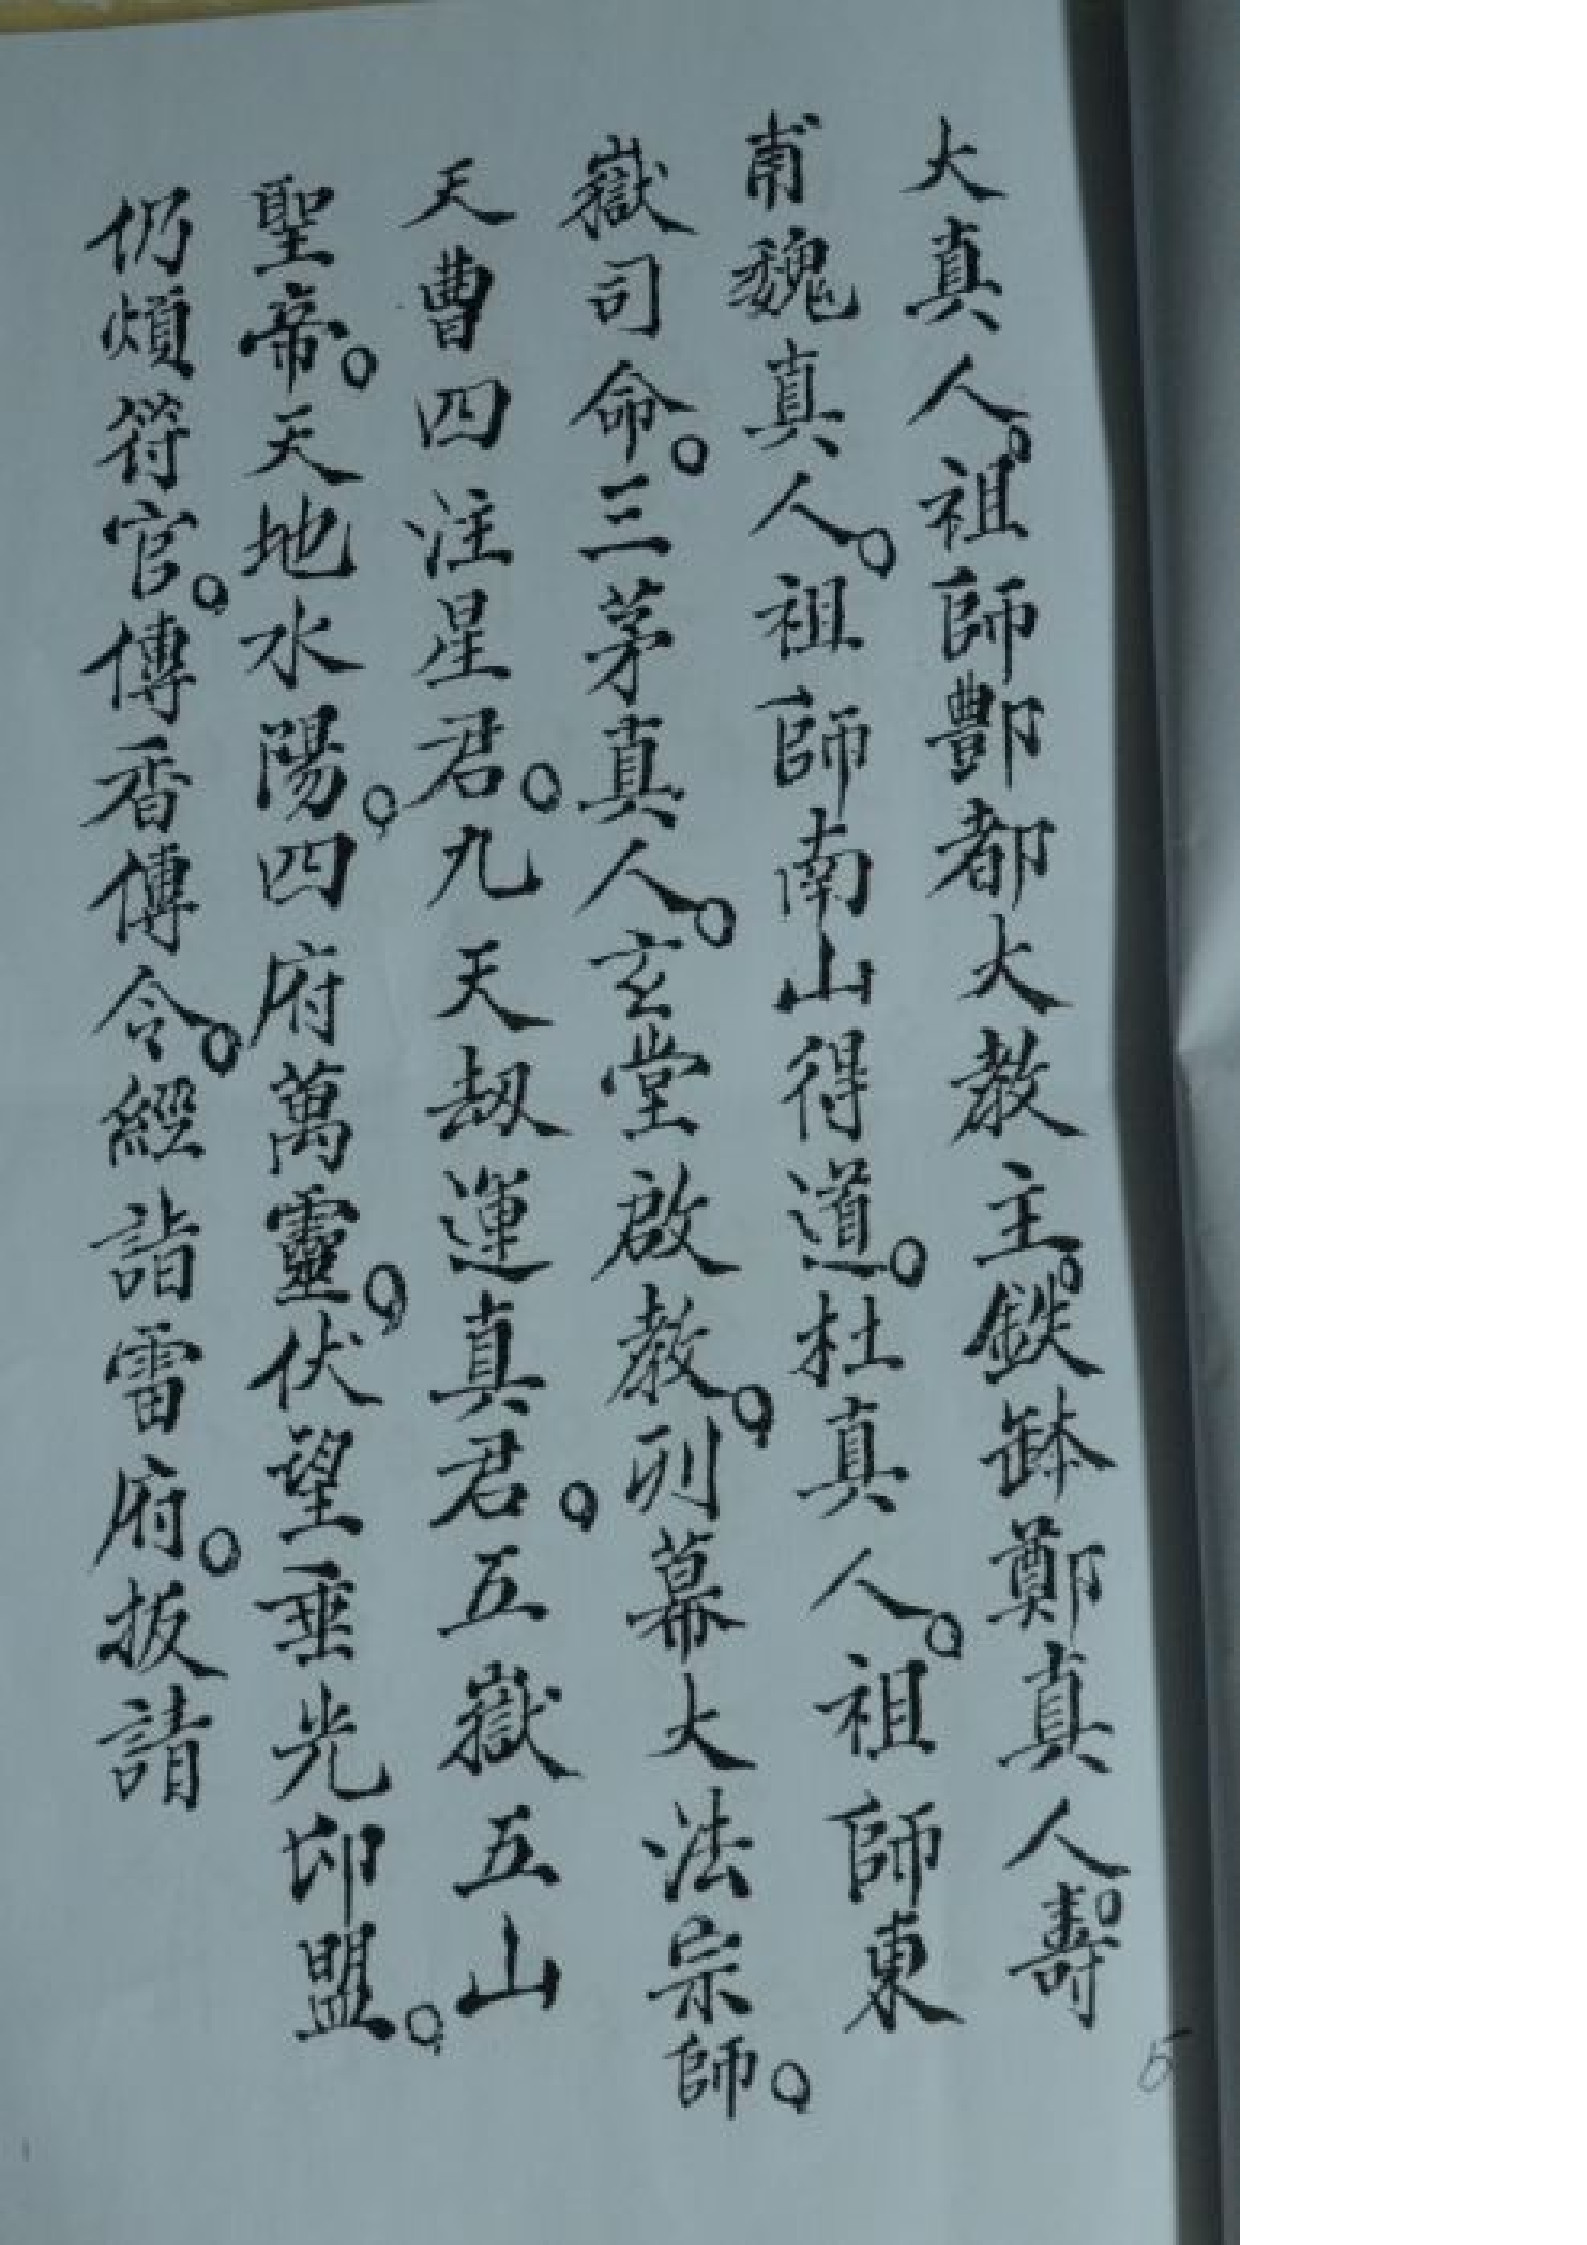 大真人。祖師酆都大教主。鉄缽鄭真人。壽
甫魏真人。祖師南山得道。杜真人。祖師東
嶽司命。三茅真人。玄堂啟教。列幕大法宗師。
天曹四注星君。九天刼運真君。五嶽五山
聖帝。天地水陽。四府萬靈。伏望垂光卬盟。
仍煩符官。傳香傳令。經詣雷府。扳請
5